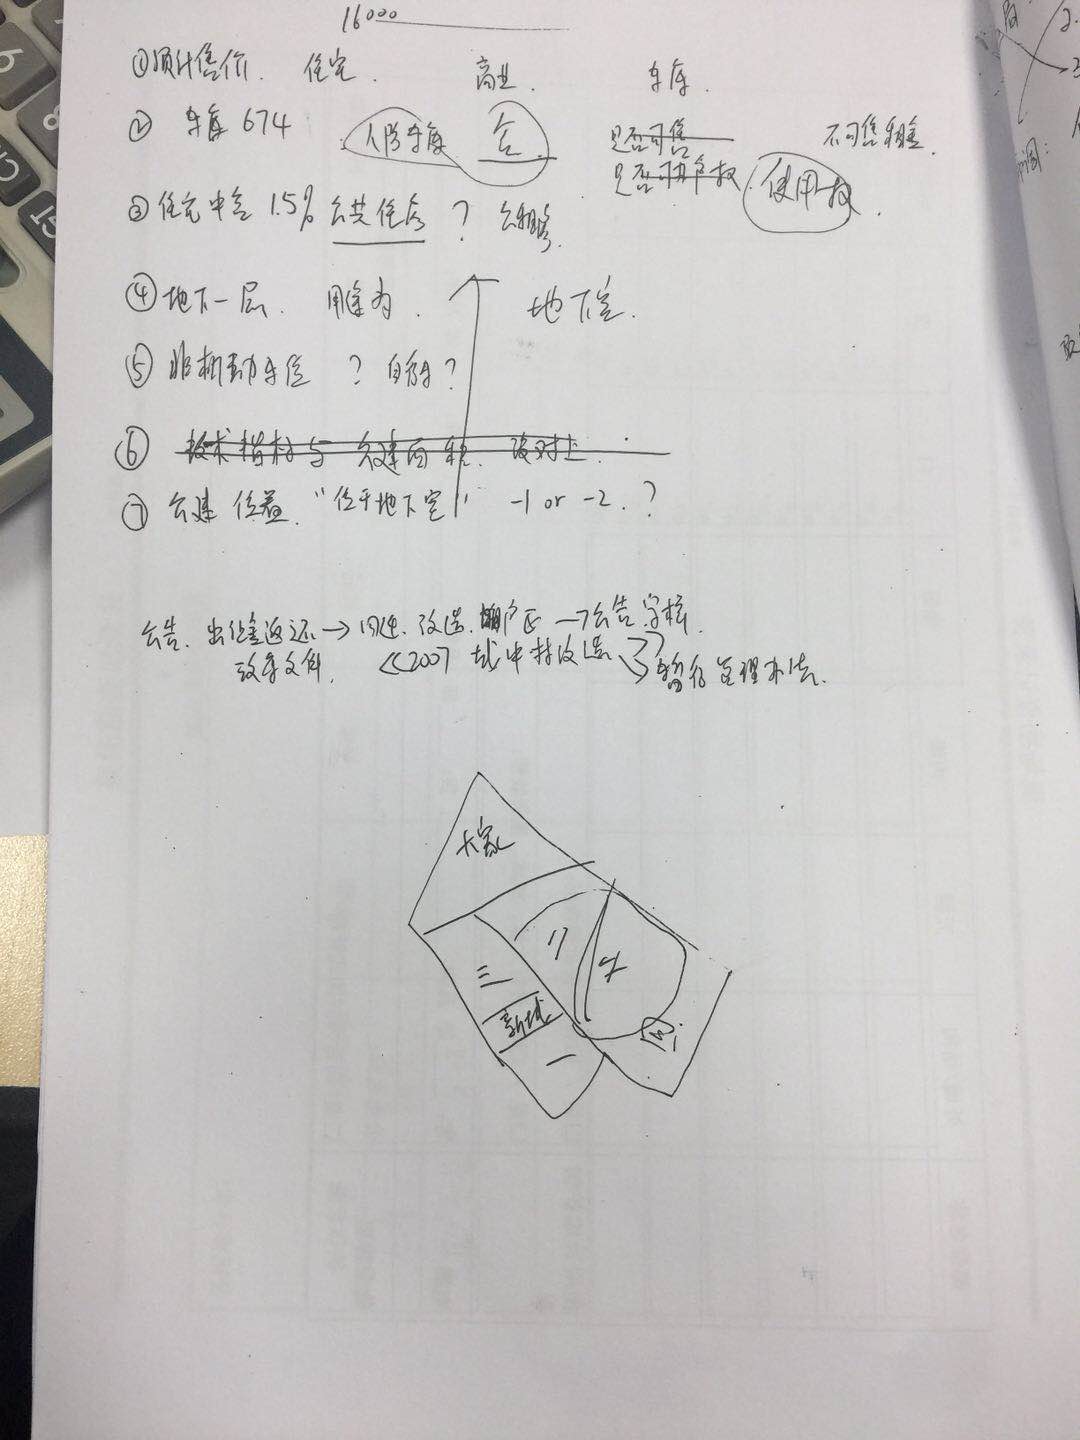 16000
①预计售价. 住宅. 商业. 车库.
② 车库 674 人防车库 含 是否可售 不可售租金.
是否可办产权 使用权.
③ 住宅中含 1.5% 公共住房 ? 公租房.
④ 地下一层. 用途为. 地下室.
⑤ 非机动车位 ? 自行车?
⑥ 技术指标与 公建面积. 没对上.
⑦ 公建 位置. "位于地下室" -1 or -2. ?
公告. 出让金返还→ 改造. 棚户区 →公告 学校.
政府文件. 《2007 城中村改造》 暂行管理办法.
大家
二
三
新城
一